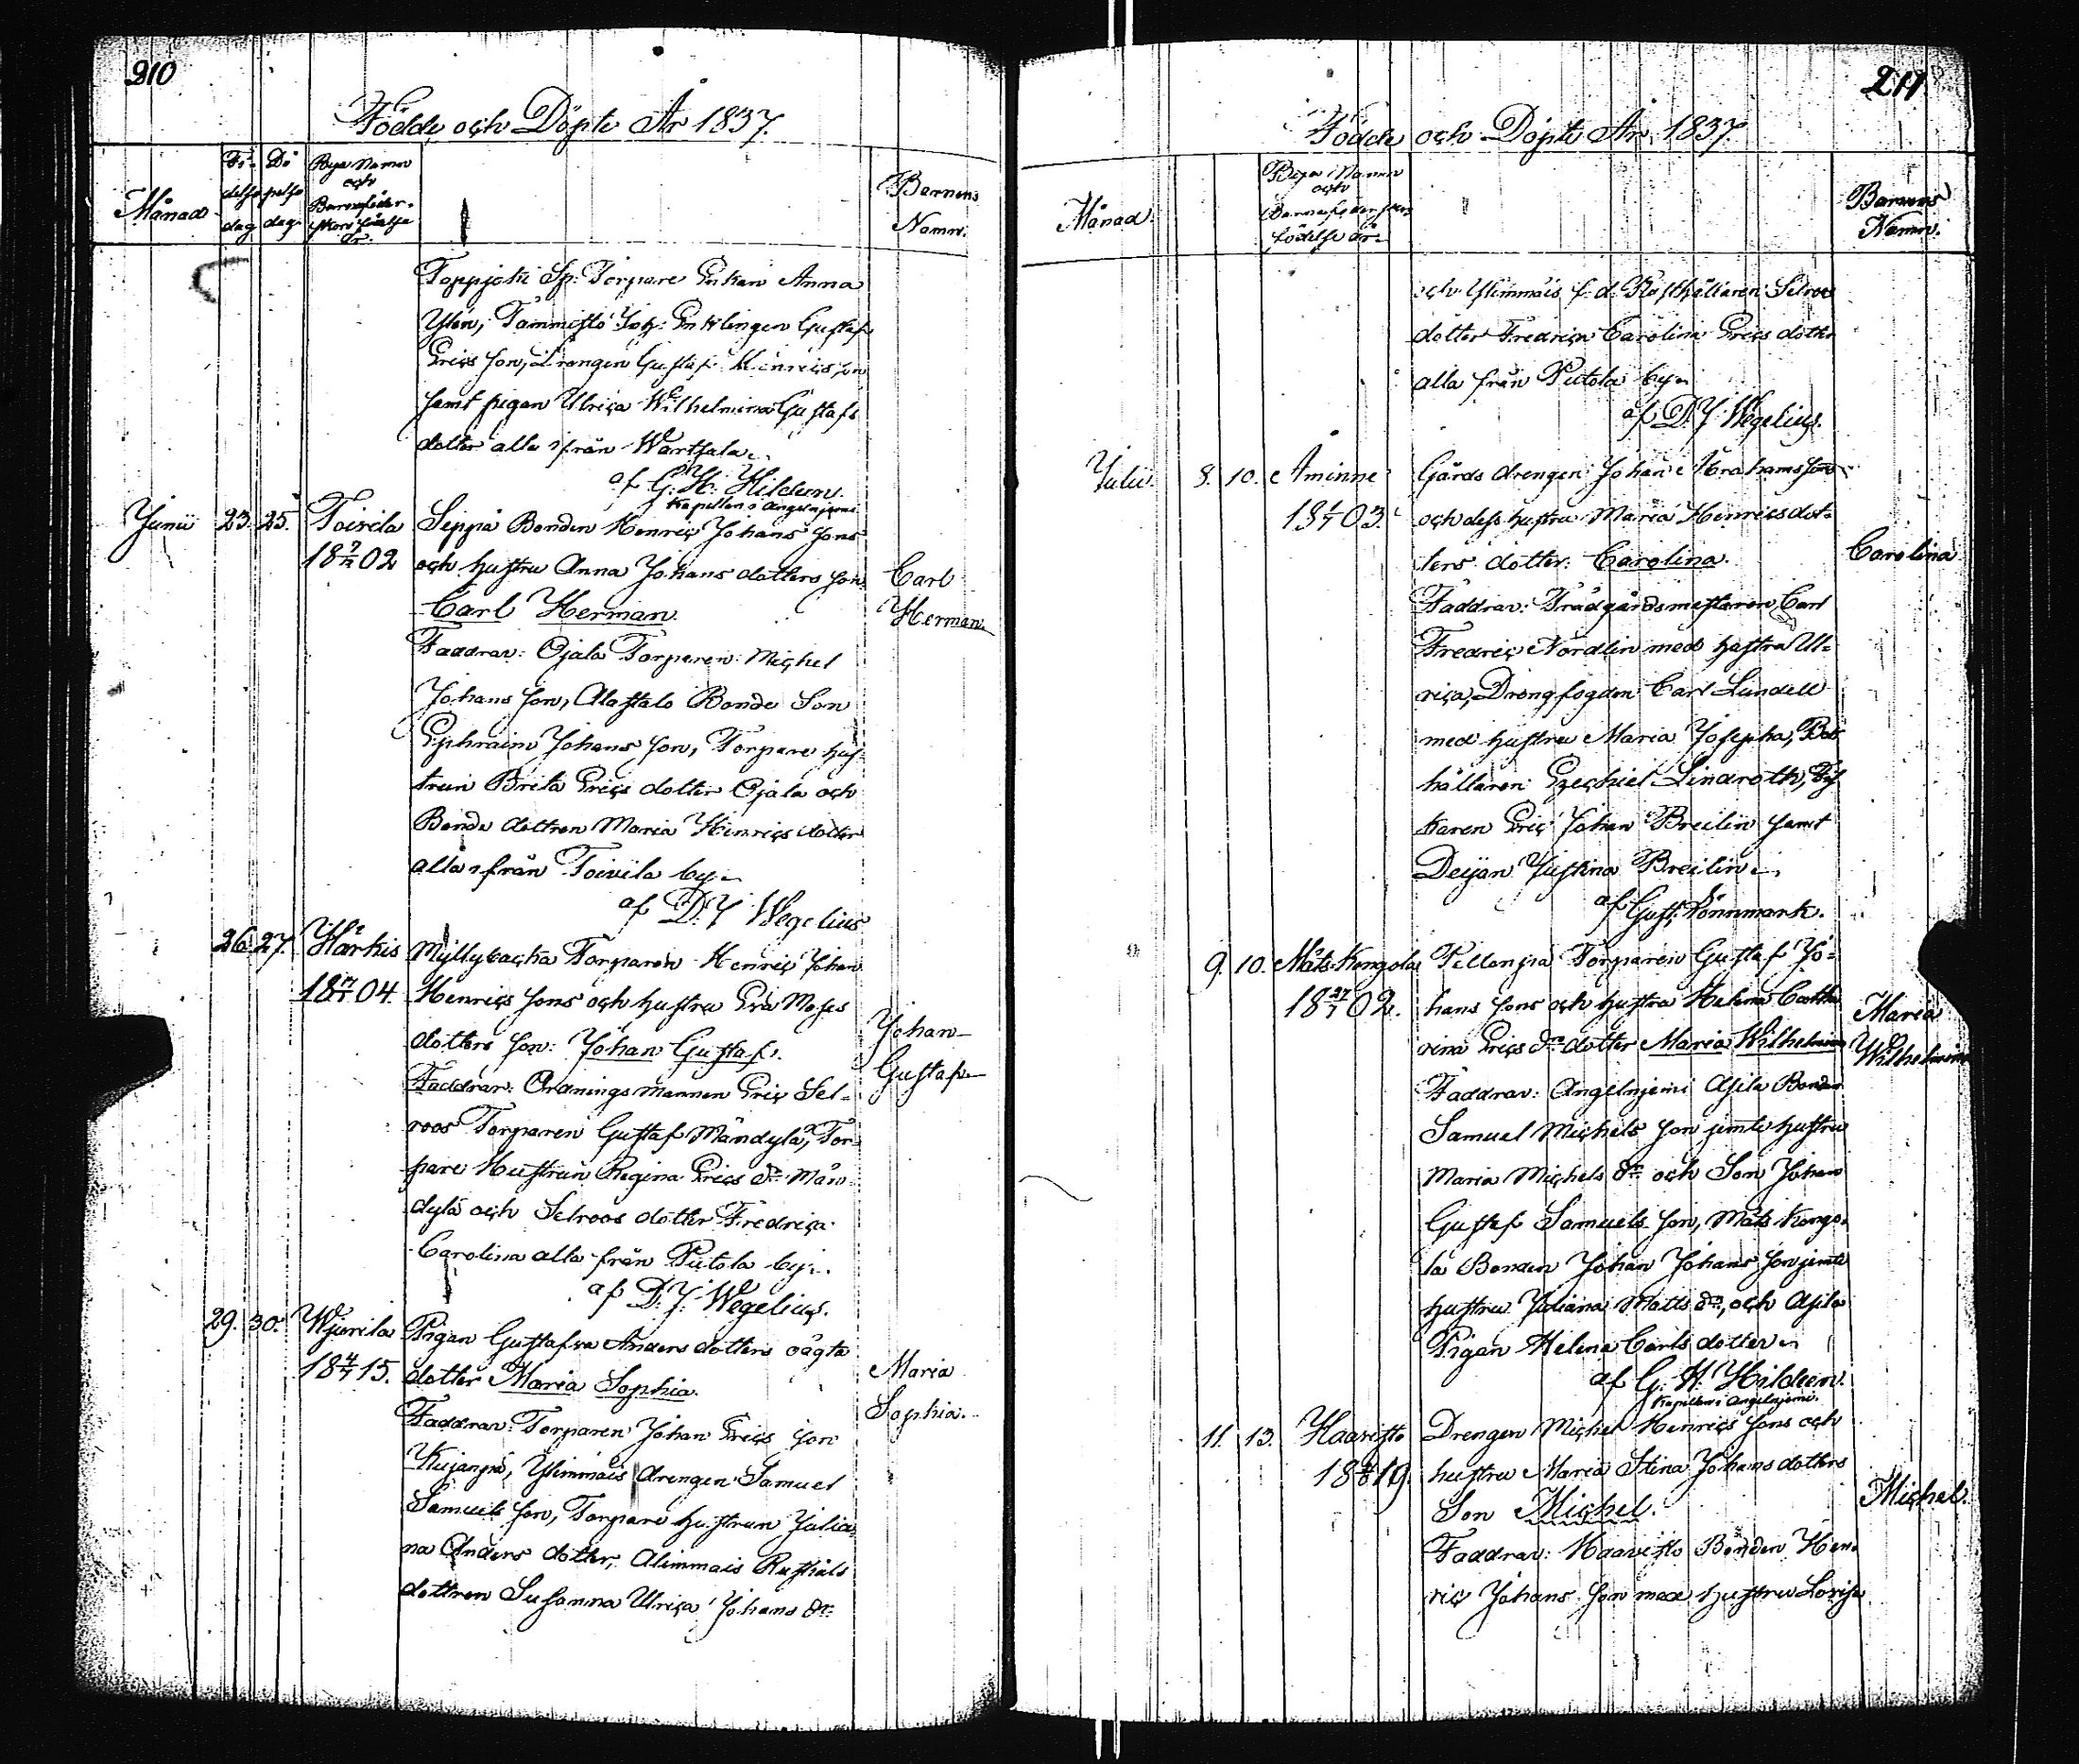 210
Födde och Döpte År 1837.
Månad
Fö-
delse
dag
Dö
pelse
dag.
Bya Namn
och
Barnaföder-
skors födelse
år.
Barnens
Namn.
Toppjoki Sp: Torpare Enkan Anna
Ylén, Tammisto Inh: Enklingen Gustaf
Erics son, Drengen Gustaf Henrics son
samt pigan Ulrica Wilhelmina Gustafs
dotter alla ifrån Wartsala.
af G. H. Hildeen.
Kapellan i Angelnjemi
Junii 23. 25. Toivila Seppä Bonden Henric Johans sons
18 02 och hustru Anna Johans dotters son Carl
Carl Herman. Herman.
Faddrar: Ojala Torparen Michel
Johans son, Alastalo Bonde Son
Ephraim Johans son, Torpare hus-
trun Brita Erics dotter Ojala och
Bonde dottren Maria Henrics dotter
alla ifrån Toivila by.
af D: J Wegelius
26. 27. Härkis Myllybacka Torparen Henric Johan
18 04. Henrics sons och hustru Eva Moses
dotters son: Johan Gustaf. Johan
Gustaf
Faddrar: Ordningsmannen Eric Sel-
roos Torparen Gustaf Mändylä, Tor-
pare Hustrun Regina Erics dr Män-
dylä och Selroos dotter Fredrica
Carolina alla från Pütola by.
af D: J: Wegelius.
29. 30. Wjurila Pigan Gustafva Anders dotters oägta
18 15. dotter Maria Sophia. Maria
Sophia.
Faddrar: Torparen Johan Erics son
Kujanpä, Ylimmäis drengen Samuel
Samuels son, Torpare hustrun Julia-
na Anders dotter, Alimmais Rusthåls
dottren Susanna Ulrica Johans dr
211
Födde och Döpte År 1837
Månad.
Bya Namn
och
Barnaföderskors
födelse år.
Barnens
Namn.
och Ylimmäis f. d. Rusthållaren Selroos
dotter Fredrica Carolina Erics dotter
alla från Pütola by.
af D. J Wegelius.
Julii. 8. 10. Åminne Gårds drengen Johan Abrahams sons
18 03. och dess hustru Maria Henrics dot-
ters dotter: Carolina. Carolina
Faddrar: Trädgårdsmästaren Carl
Fredric Nordlin med hustru Ul-
rica, Drengfogden Carl Lundell
med hustru Maria Josepha, Bok
hållaren Ezechiel Lindroth, Fis
karen Eric Johan Breilin samt
Dejan Justina Breilin.
af Gust. Rönnmark.
9. 10. Mäts-Kongola Pellonpä Torparen Gustaf Jo-
18 27 02. hans sons och hustru Helena Catha
rina Erics dr dotter Maria Wilhelmina Maria
Wilhelmina
Faddrar: Angelnjemi Asila Bonden
Samuel Michels son jemte hustru
Maria Michels dr och Son Johan
Gustaf Samuels son, Mäts Kongo-
la Bonden Johan Johans son jemte
hustru Juliana Matts dr, och Asila
Pigan Helena Carls dotter.
af G. H. Hildeen.
Kapellan i Angelnjemi.
11. 13. Haavisto Drengen Michel Henrics sons och
18 19. hustru Maria Stina Johans dotters
Son Michel. Michel.
Faddrar: Haavisto Bonden Hen-
ric Johans son med hustru Lovisa